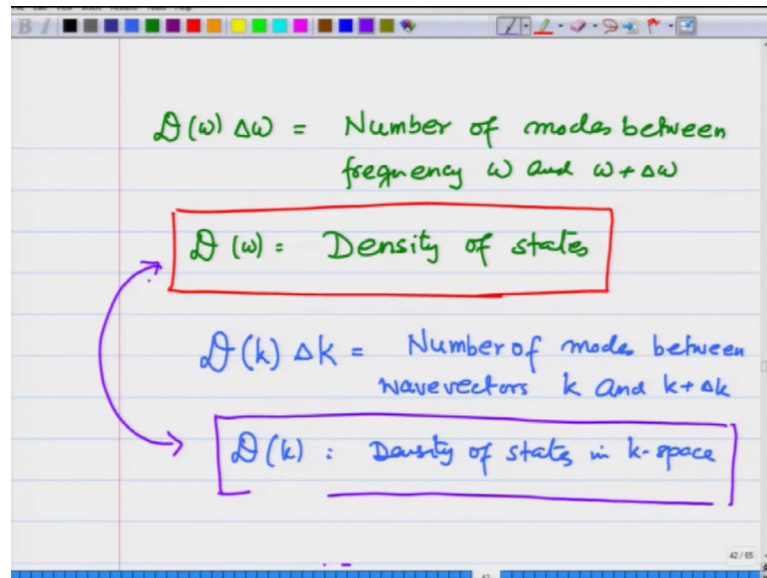 D(ω) Δω = Number of modes between
frequency ω and ω+Δω
D(ω) = Density of states
D(k) Δk = Number of modes between
wavevectors k and k+Δk
D(k) : Density of states in k-space
42 / 65